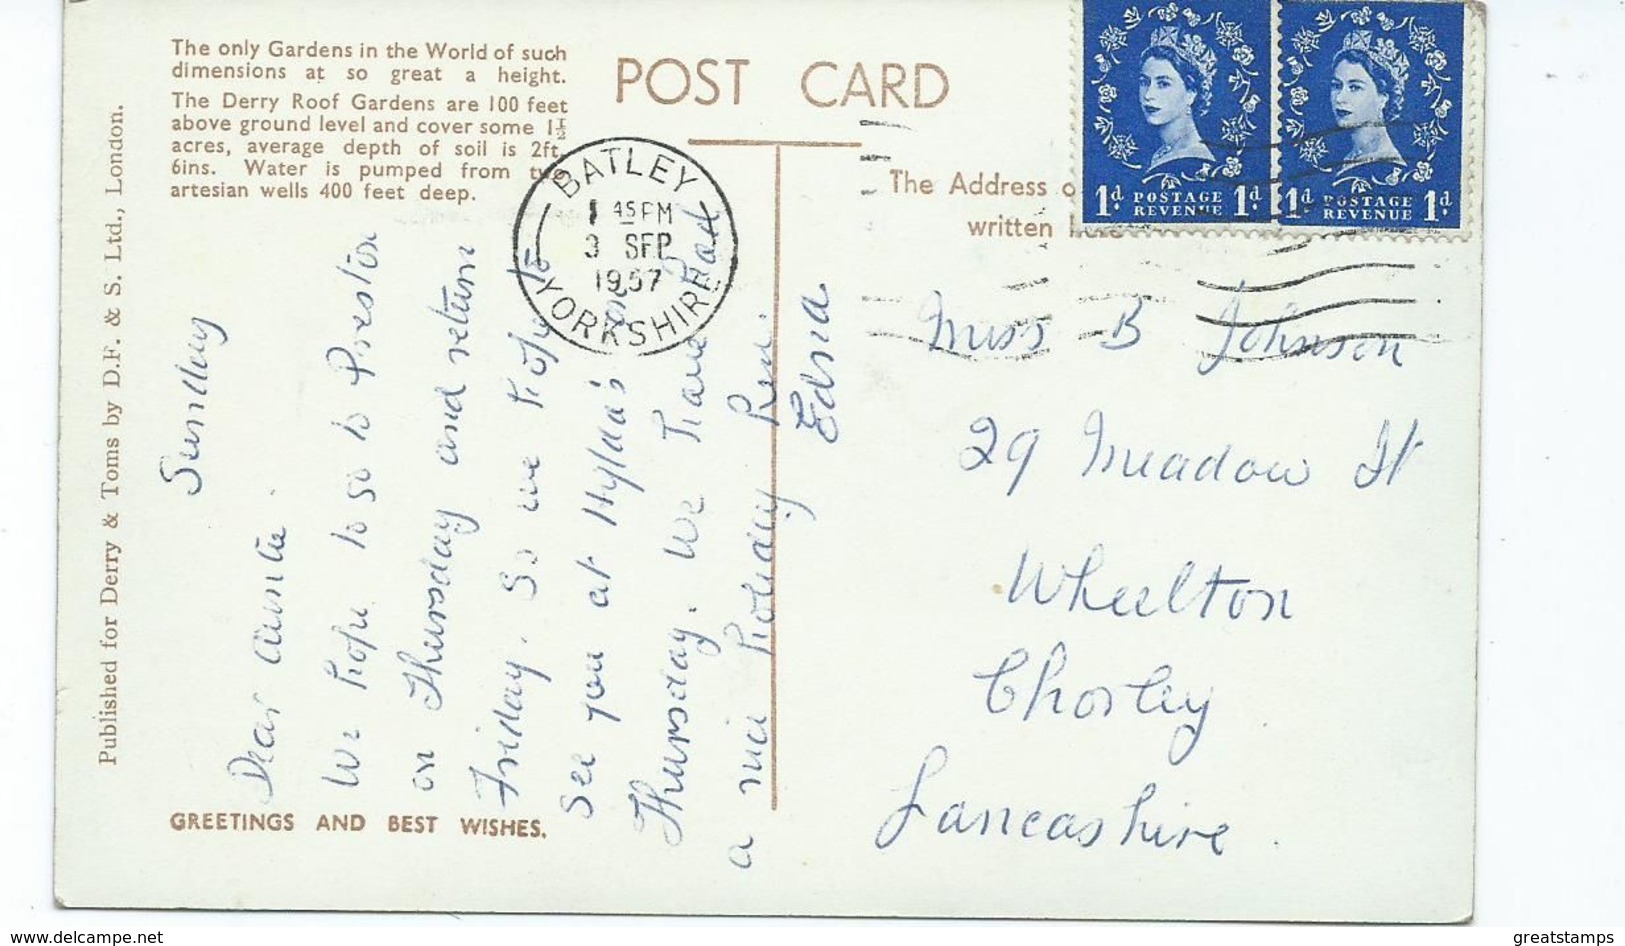 The only Gardens in the World of such
dimensions at so great a height.
The Derry Roof Gardens are 100 feet
above ground level and cover some 1½
acres, average depth of soil is 2ft.
6ins. Water is pumped from two
artesian wells 400 feet deep.
POST CARD
The Address
written
1d POSTAGE REVENUE 1d
1d POSTAGE REVENUE 1d
BATLEY
45 PM
3 SEP
1957
YORKSHIRE
Published for Derry & Toms by D.F. & S. Ltd., London.
Sunday
Dear Auntie.
We hope to go to Preston
on Thursday and return
Friday. So we hope to
see you at Hylda's on
Thursday. We have had
a nice holiday
Edna
GREETINGS AND BEST WISHES.
Miss B Johnson
29 Meadow St
Wheelton
Chorley
Lancashire
www.delcampe.net
greatstamps